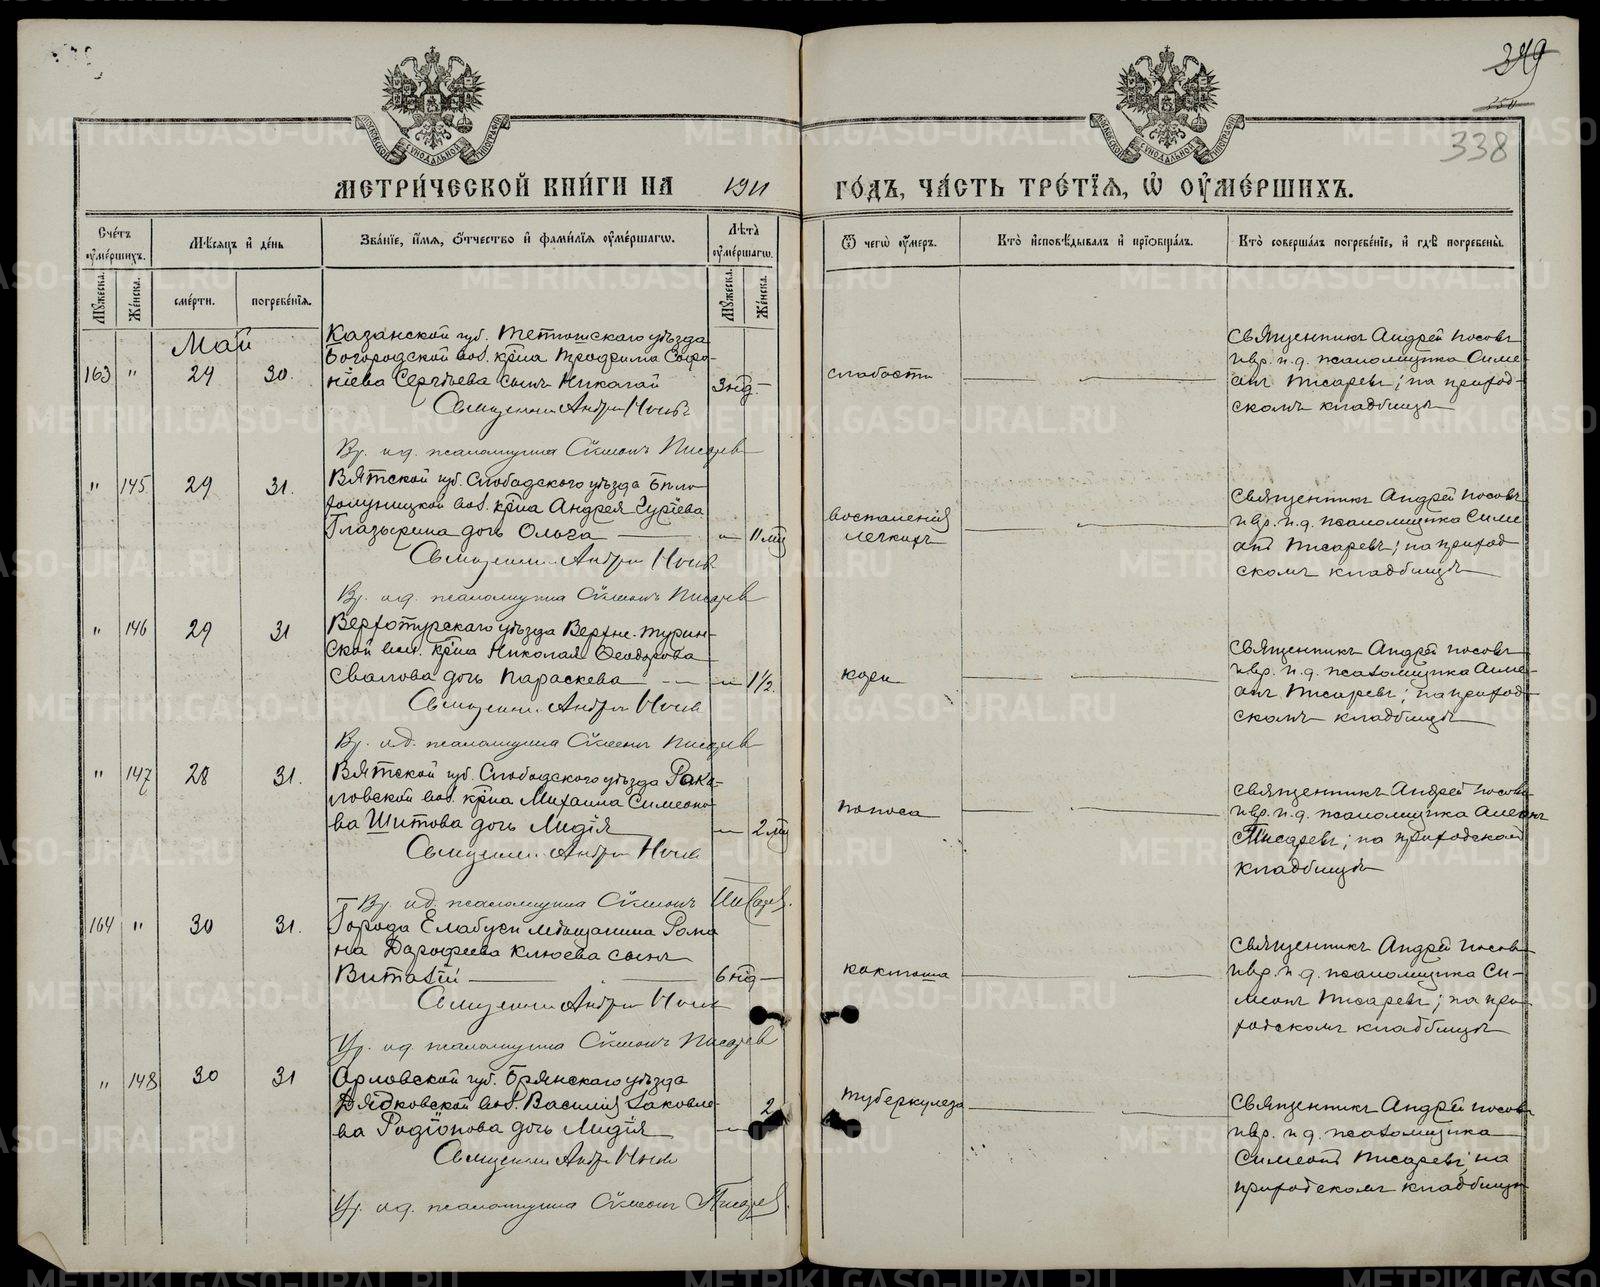 349
338
МЕТРИ́ЧЕСКОЙ КНИ́ГИ НА 1911 ГО́ДЪ, ЧА́СТЬ ТРЕ́ТЇѦ, Ѽ ОУМЕ́РШИХЪ.
Сче́тъ оумершихъ.
Мѣсяцъ и де́нь
Зва́нїе, и́мя, о́тчество и фами́лїя оумершагѡ.
Лѣта оумершагѡ.
Ѿ чегѡ̀ оу́меръ.
Кто̀ исповѣдывалъ и прїобщалъ.
Кто̀ совершалъ погребе́нїе, и гдѣ погребены̀.
Мꙋжеска.
Же́нска.
сме́рти.
погребе́нїя.
Мꙋжеска.
Же́нска.
Май
163 " 29 30.
Казанской губ. Тетюшскаго уѣзда
Богородской вол. кр̃на Трофима Софро-
нiева Сергѣева сынъ Николай 3 нд.
Священникъ Андрей Носовъ
Вр. и.д. псаломщика Симеонъ Писаревъ
слабости
Священникъ Андрей Носовъ
и вр. и.д. псаломщика Симе-
онъ Писаревъ; на приход-
скомъ кладбищѣ
" 145 29 31.
Вятской губ. Слободского уѣзда Бѣло
холуницкой вол. кр̃на Андрея Гурiева
Глазырина дочь Ольга — " 11 мц
Священникъ Андрей Носовъ
Вр. и.д. псаломщика Симеонъ Писаревъ
воспаленiя
легкихъ
Священникъ Андрей Носовъ
и вр. и.д. псаломщика Симе
онъ Писаревъ; на приход
скомъ кладбищѣ
" 146 29 31
Верхотурскаго уѣзда Верхне-Турин-
ской вол. кр̃на Николая Ѳеодорова
Свалова дочь Параскева — " 1½.
Священникъ Андрей Носовъ
Вр. и.д. псаломщика Симеонъ Писаревъ
кори
Священникъ Андрей Носовъ
и вр. и.д. псаломщика Симе-
онъ Писаревъ; на приход-
скомъ кладбищѣ
" 147 28 31.
Вятской губ. Слободского уѣзда Рака-
ловской вол. кр̃на Михаила Симеоно-
ва Шитова дочь Лидiя — 2 мц
Священникъ Андрей Носовъ
Вр. и.д. псаломщика Симеонъ Писаревъ.
поноса
Священникъ Андрей Носовъ
и вр. и.д. псаломщика Симеонъ
Писаревъ; на приходскомъ
кладбищѣ
164 " 30 31.
Города Елабуги мѣщанина Рома
на Дарофеева Клюева сынъ
Виталiй — 6 нд —
Священникъ Андрей Носовъ
Вр. и.д. псаломщика Симеонъ Писаревъ
коклюша
Священникъ Андрей Носовъ
и вр. и.д. псаломщика Си-
меонъ Писаревъ; на при
ходскомъ кладбищѣ
" 148 30 31
Орловской губ. Брянскаго уѣзда
Дядковской вол. Василiя Iаковле-
ва Родiонова дочь Лидiя — 2
Священникъ Андрей Носовъ
Вр. и.д. псаломщика Симеонъ Писаревъ.
туберкулеза
Священникъ Андрей Носовъ
и вр. и.д. псаломщика
Симеонъ Писаревъ; на
приходскомъ кладбищѣ
METRIKI.GASO-URAL.RU